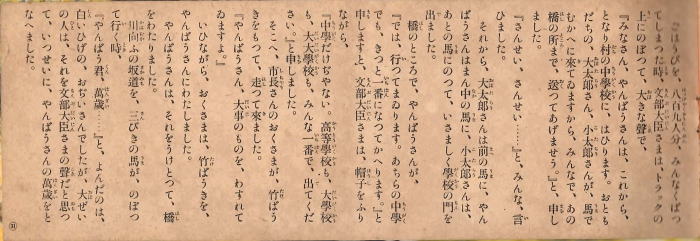 ごはうびを、八百九人分、みんなくばつ
てしまつた時、文部大臣さまは、トラックの
上にのぼつて、大きな聲で、
『みなさん、やんばうさんは、これから、
となり村の中學校に、はひります。おとも
だちの、大太郎さん、小太郎さんが、馬で
むかへに來てゐますから、みんなで、あの
橋の所まで、送つてあげませう。』と、申し
ました。
『さんせい、さんせい……』と、みんな、言
ひました。
それから、大太郎さんは前の馬に、やん
ばうさんはまん中の馬に、小太郎さんは、
あとの馬にのつて、いさましく學校の門を
出ました。
橋のところで、やんばうさんが、
『では、行つてまゐります。あちらの中學
でも、きつと一番になつてかへります。』と
申しますと、文部大臣さまは、帽子をふり
ながら、
『中學だけぢやない。高等學校も、大學校
も、大大學校も、みんな一番で、出てくだ
さい。』と申しました。
そこへ、市長さんのおくさまが、竹ばう
きをもつて、走つて來ました。
『やんばうさん、大事のものを、わすれて
ゐますよ。』
いひながら、おくさまは、竹ばうきを、
やんばうさんにわたしました。
やんばうさんは、それをうけとつて、橋
をわたりました。
川向ふの坂道を、三びきの馬が、のぼつ
て行く時、
『やんばう君、萬歳……』と、よんだのは、
白いひげの、おぢいさんでしたが、大ぜい
の人は、それを文部大臣さまの聲だと思つ
て、いつせいに、やんばうさんの萬歳をと
なへました。
31